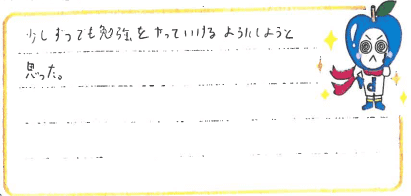 少しずつでも勉強をやっていけるようにしようと
思った。